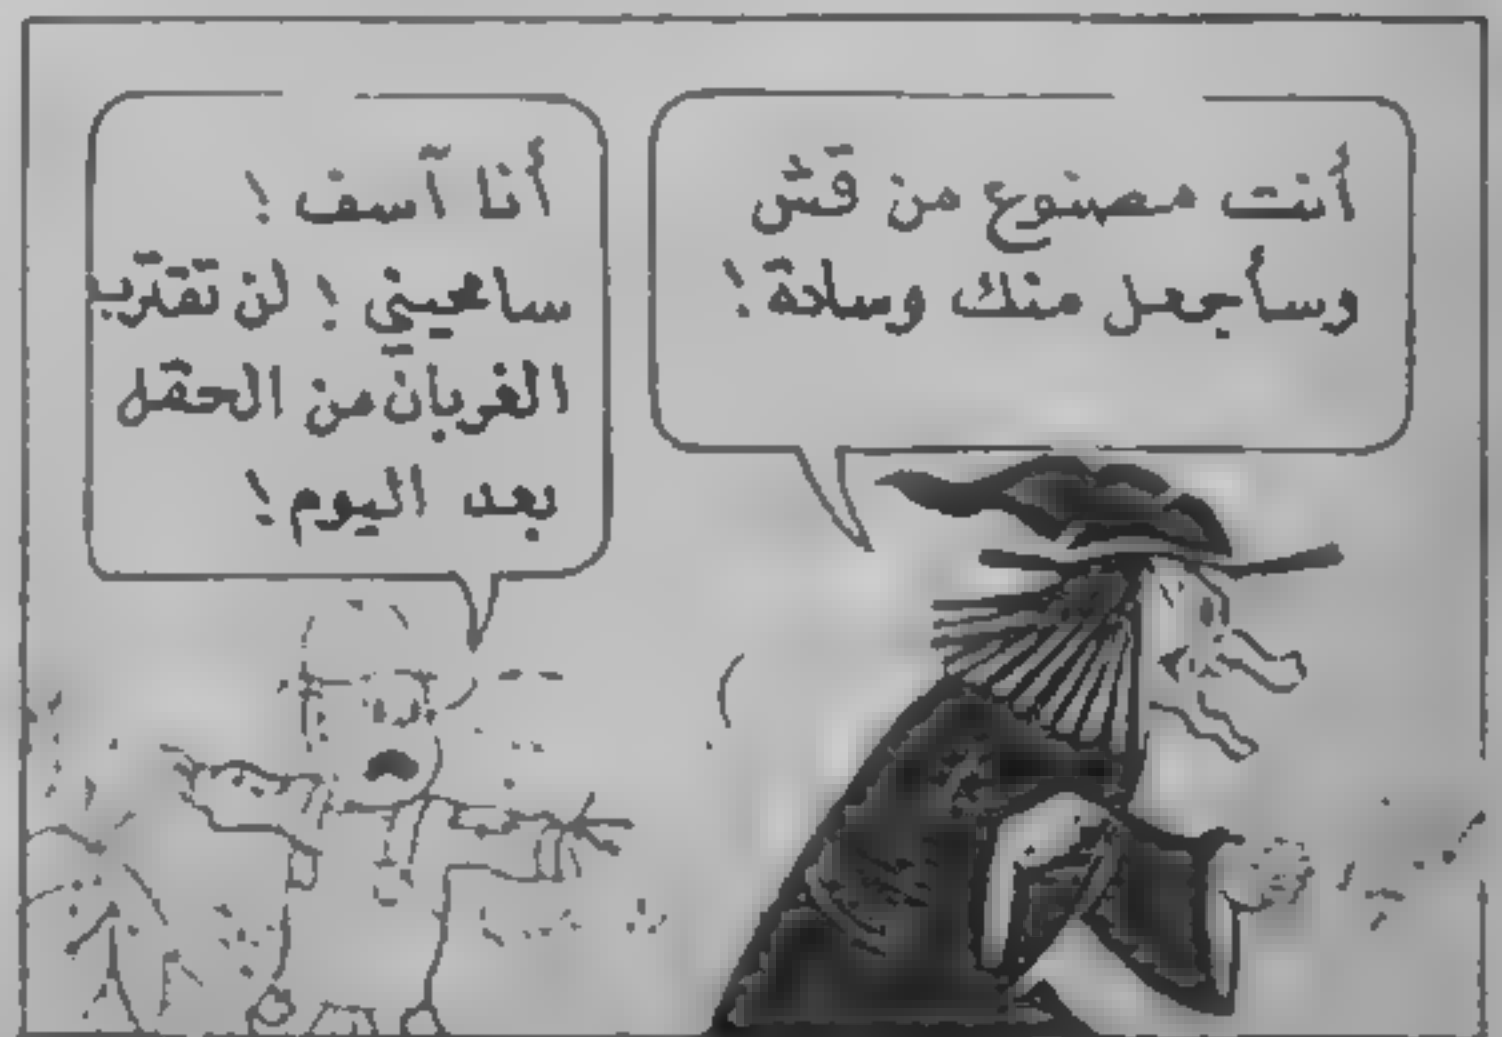 أنت مصنوع من قش
وسأجعل منك وسادة!
أنا آسف!
سامحيني! لن تقترب
الغربان من الحقل
بعد اليوم!